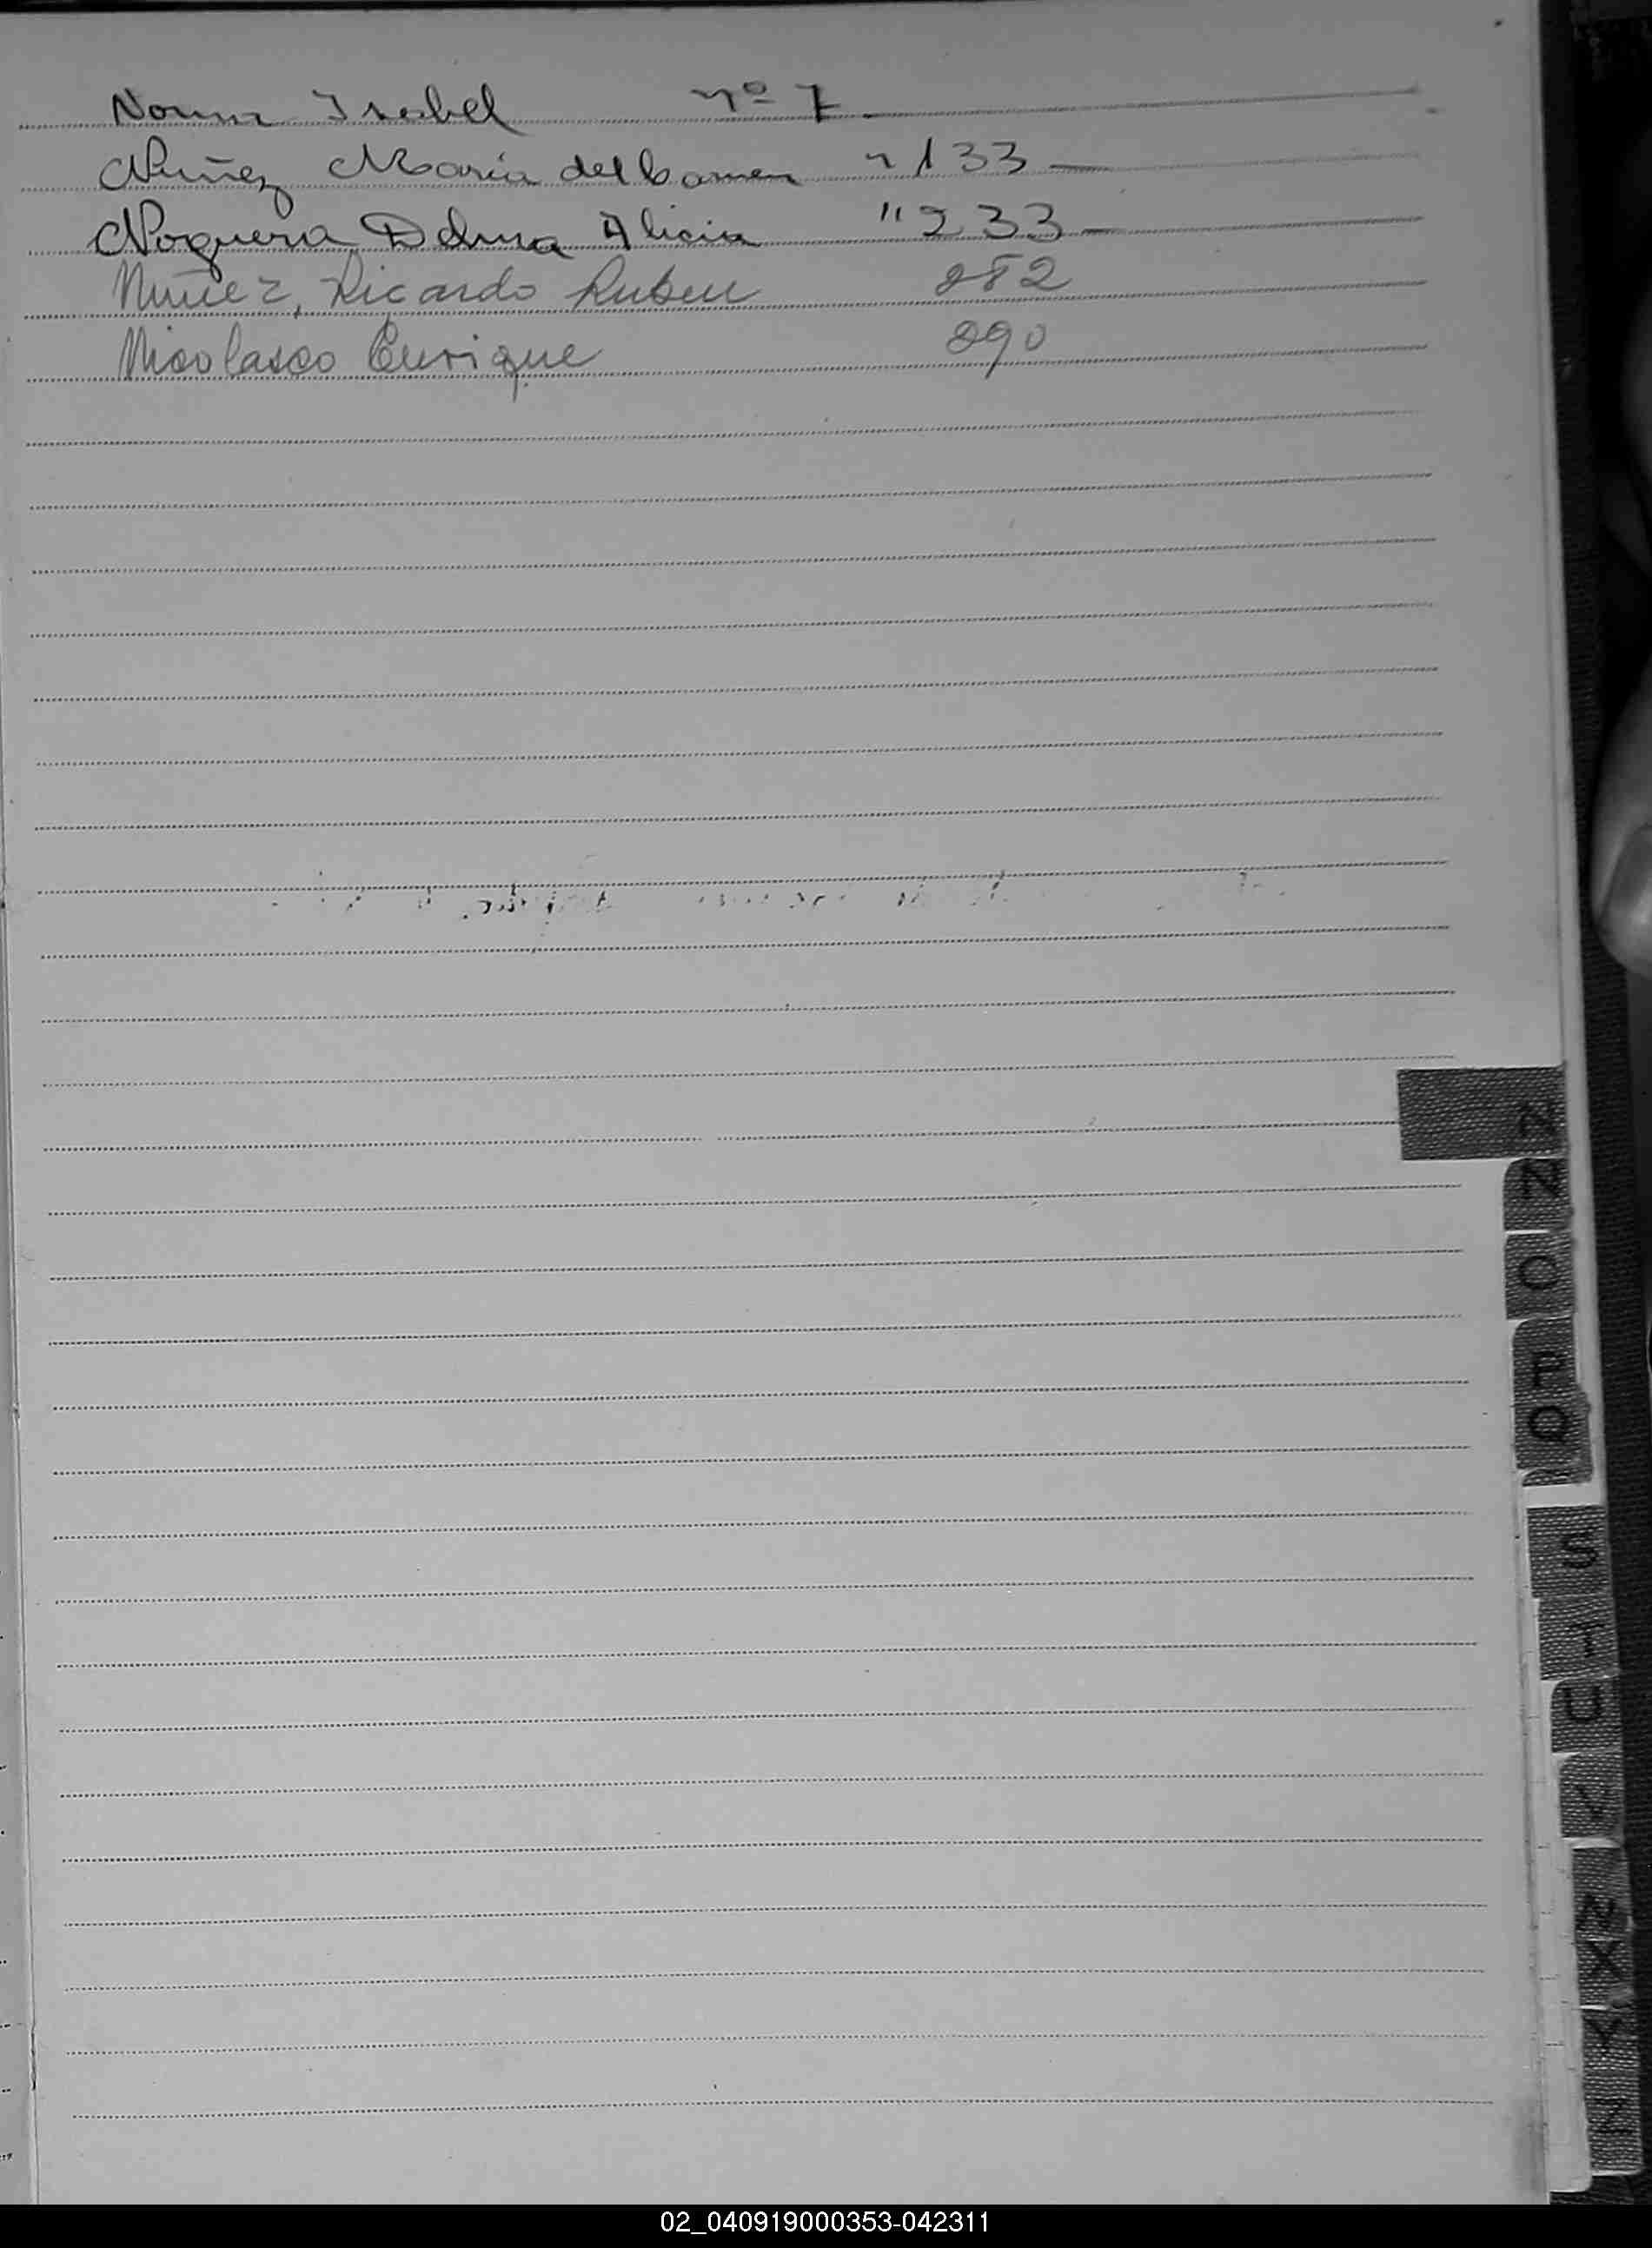 Norma Isabel nº 7
Nuñez Maria del Carmen " 133
Noguera Delma Alicia " 233
Nuñez, Ricardo Ruben 282
Nicolasco Enrique 290
N
N
O
P
Q
S
T
U
V
W
X
Y
Z
02_040919000353-042311